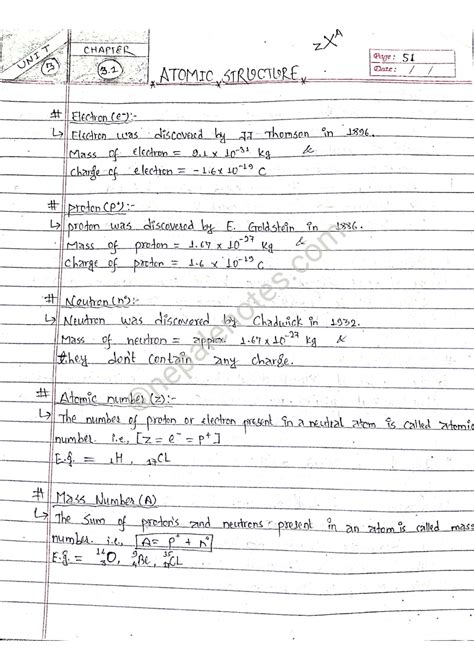 UNIT 3
CHAPTER 3.1
zXᴬ
Page: 51
Date: / /
ATOMIC STRUCTURE
# Electron (e⁻):-
↳ Electron was discovered by JJ Thomson in 1896.
Mass of electron = 9.1 x 10⁻³¹ kg &
Charge of electron = -1.6 x 10⁻¹⁹ C
# proton (p⁺):-
↳ proton was discovered by E. Goldstein in 1886.
Mass of proton = 1.67 x 10⁻²⁷ kg &
Charge of proton = 1.6 x 10⁻¹⁹ C
# Neutron (n⁰):-
↳ Neutron was discovered by Chadwick in 1932.
Mass of neutron = approx 1.67 x 10⁻²⁷ kg &
they don't contain any charge.
# Atomic number (z):-
↳ The number of proton or electron present in a neutral atom is called atomic
number. i.e., [z = e⁻ = p⁺]
E.g. = ₁H, ₁₇CL
# Mass Number (A)
↳ The sum of proton's and neutrons present in an atom is called mass
number. i.e., A = p⁺ + n⁰
E.g. = O, ⁹₄Be, ³⁵₁₇CL
@nepalenotes.com